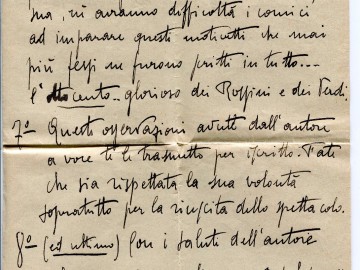 ma, vi avranno difficoltà i comici
ad imparare questi motivetti che mai
più fessi ne furono scritti in tutto...
l'ottocento.. glorioso dei Rossini e dei Verdi.
7º Queste osservazioni avute dall'autore
a voce te le trasmetto per iscritto. Fate
che sia rispettata la sua volontà
sopratutto per la riuscita dello spettacolo.
8º (ed ultimo) Con i saluti dell'autore